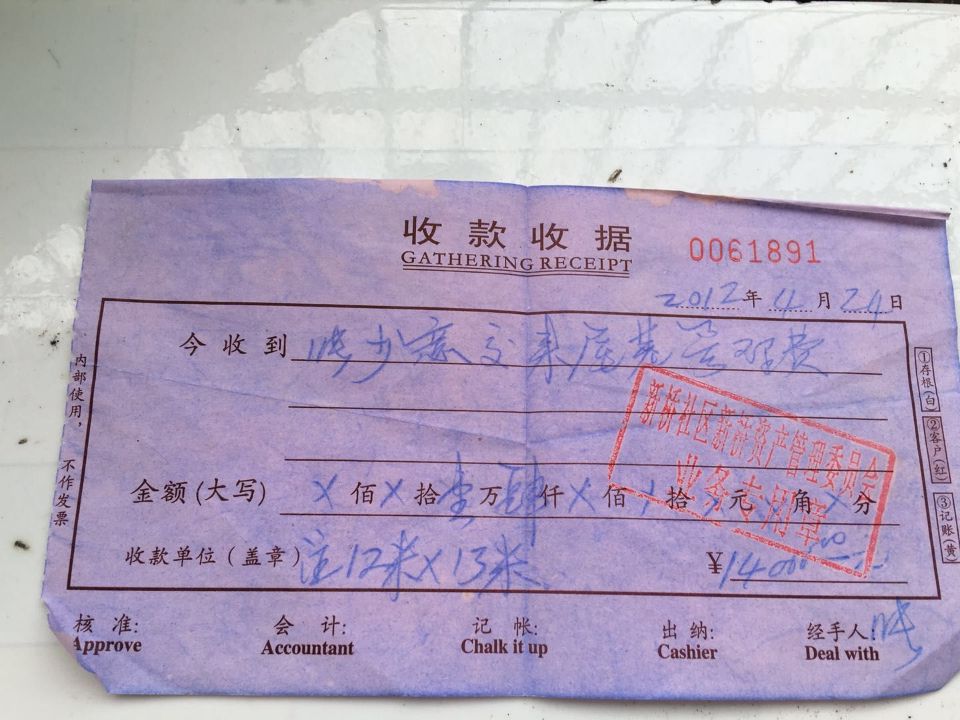 收款收据
GATHERING RECEIPT
0061891
2012年4月24日
今收到 少 交来屋基管理费
金额(大写) X佰X拾壹万肆仟X佰 拾 元 角 分
收款单位(盖章) 注12米X13米
¥14000.00元
新桥社区新桥资产管理委员会
业务专用章
内部使用，不作发票
①存根(白)
②客户(红)
③记账(黄)
核 准: 会 计: 记 帐: 出 纳: 经手人:
Approve Accountant Chalk it up Cashier Deal with